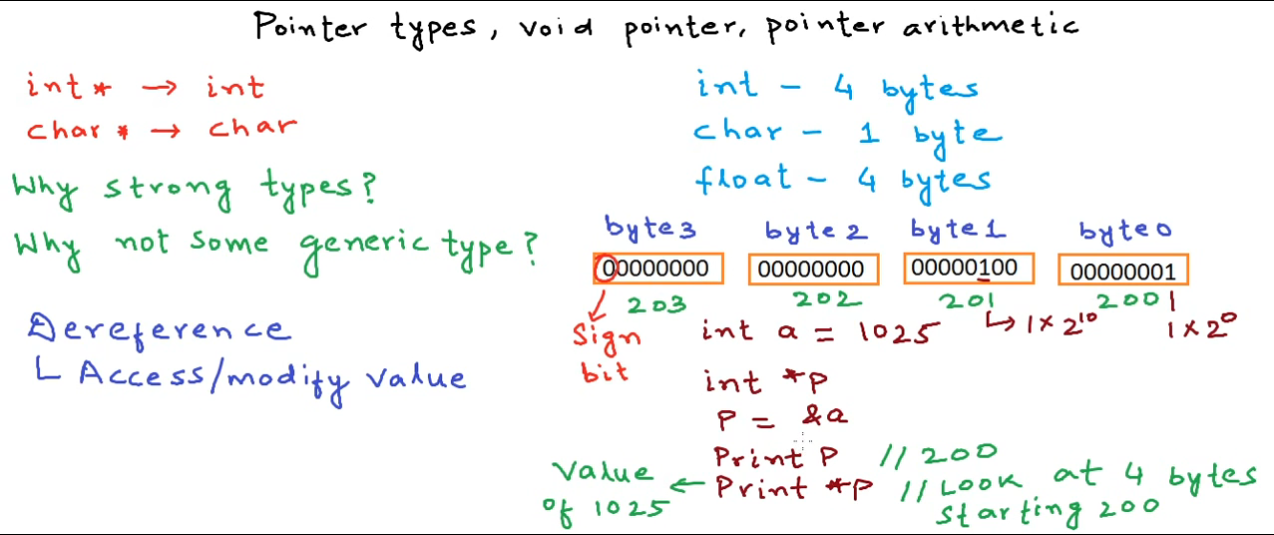 Pointer types, void pointer, pointer arithmetic
int * → int
char * → char
Why strong types?
Why not some generic type?
Dereference
└ Access/modify value
int - 4 bytes
char - 1 byte
float - 4 bytes
byte3 byte2 byte1 byte0
00000000 00000000 00000100 00000001
203 202 201 200
Sign bit
int a = 1025 ↳ 1 × 2¹⁰ 1 × 2⁰
int *p
P = &a
Print P // 200
Value of 1025 ← Print *p // Look at 4 bytes
starting 200